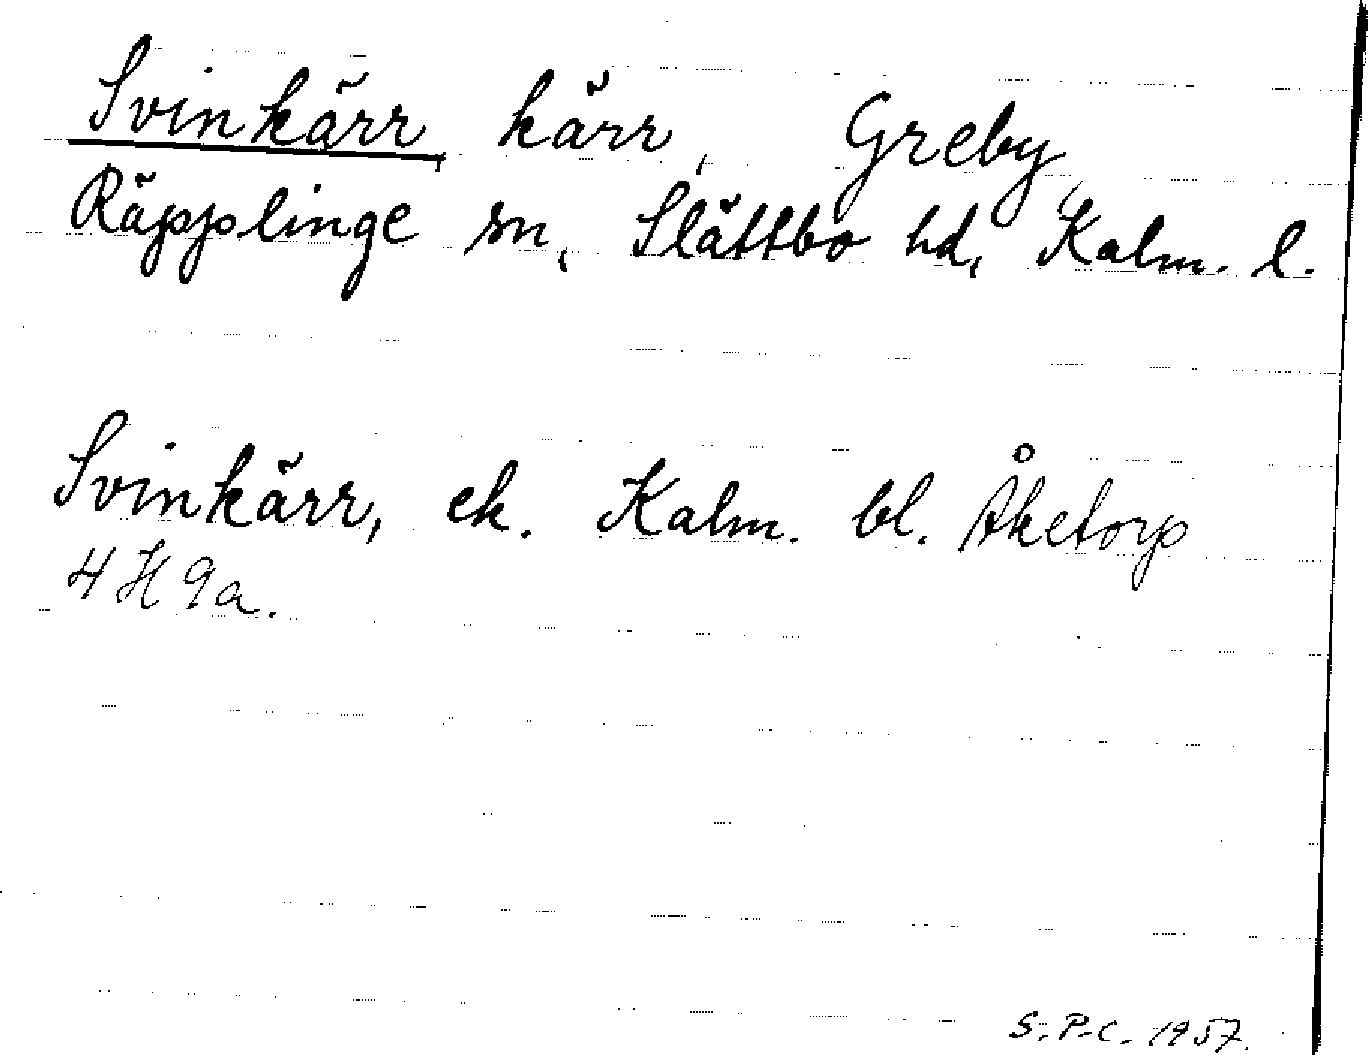 Svinkärr, kärr, Greby,
Räpplinge sn, Slättbo hd, Kalm. l.
Svinkärr, ek. Kalm. bl. Åketorp
4 H 9a.
S.P.C. 1957.